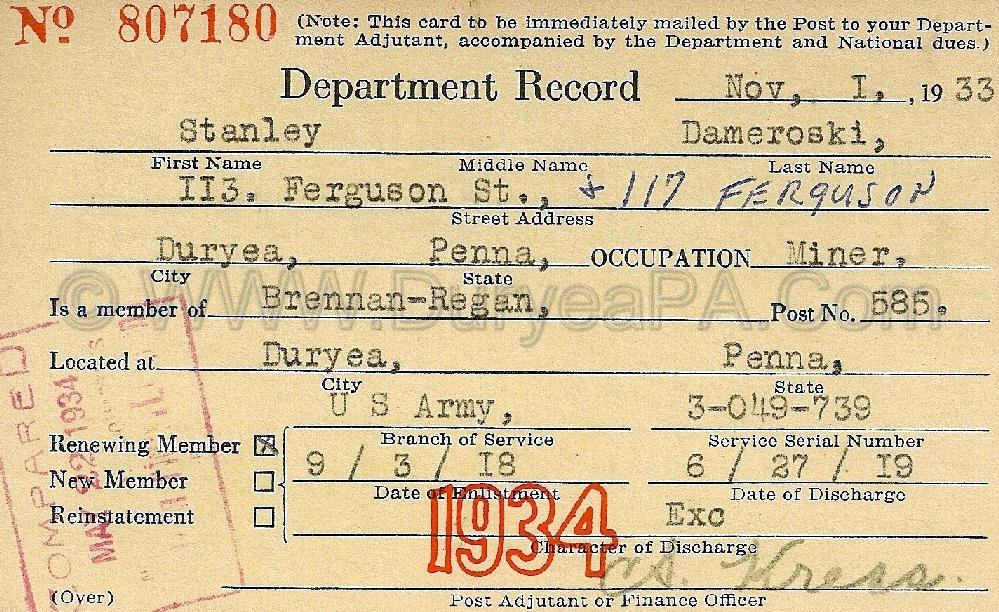 No 807180 (Note: This card to be immediately mailed by the Post to your Depart-
ment Adjutant, accompanied by the Department and National dues.)
Department Record Nov, I, , 19 33
Stanley Dameroski,
First Name Middle Name Last Name
II3. Ferguson St., & 117 FERGUSON
Street Address
Duryea, Penna, OCCUPATION Miner.
City State
© WWW.DuryeaPA.Com
Is a member of Brennan-Regan, Post No. 585.
Located at Duryea, Penna,
City State
U S Army, 3-049-739
Renewing Member Branch of Service Service Serial Number
9 / 3 / I8 6 / 27 / I9
New Member Date of Enlistment Date of Discharge
Reinstatement Exc
1934
Character of Discharge
C.A. Kress.
(Over) Post Adjutant or Finance Officer
COMPARED
MAY 22 1934